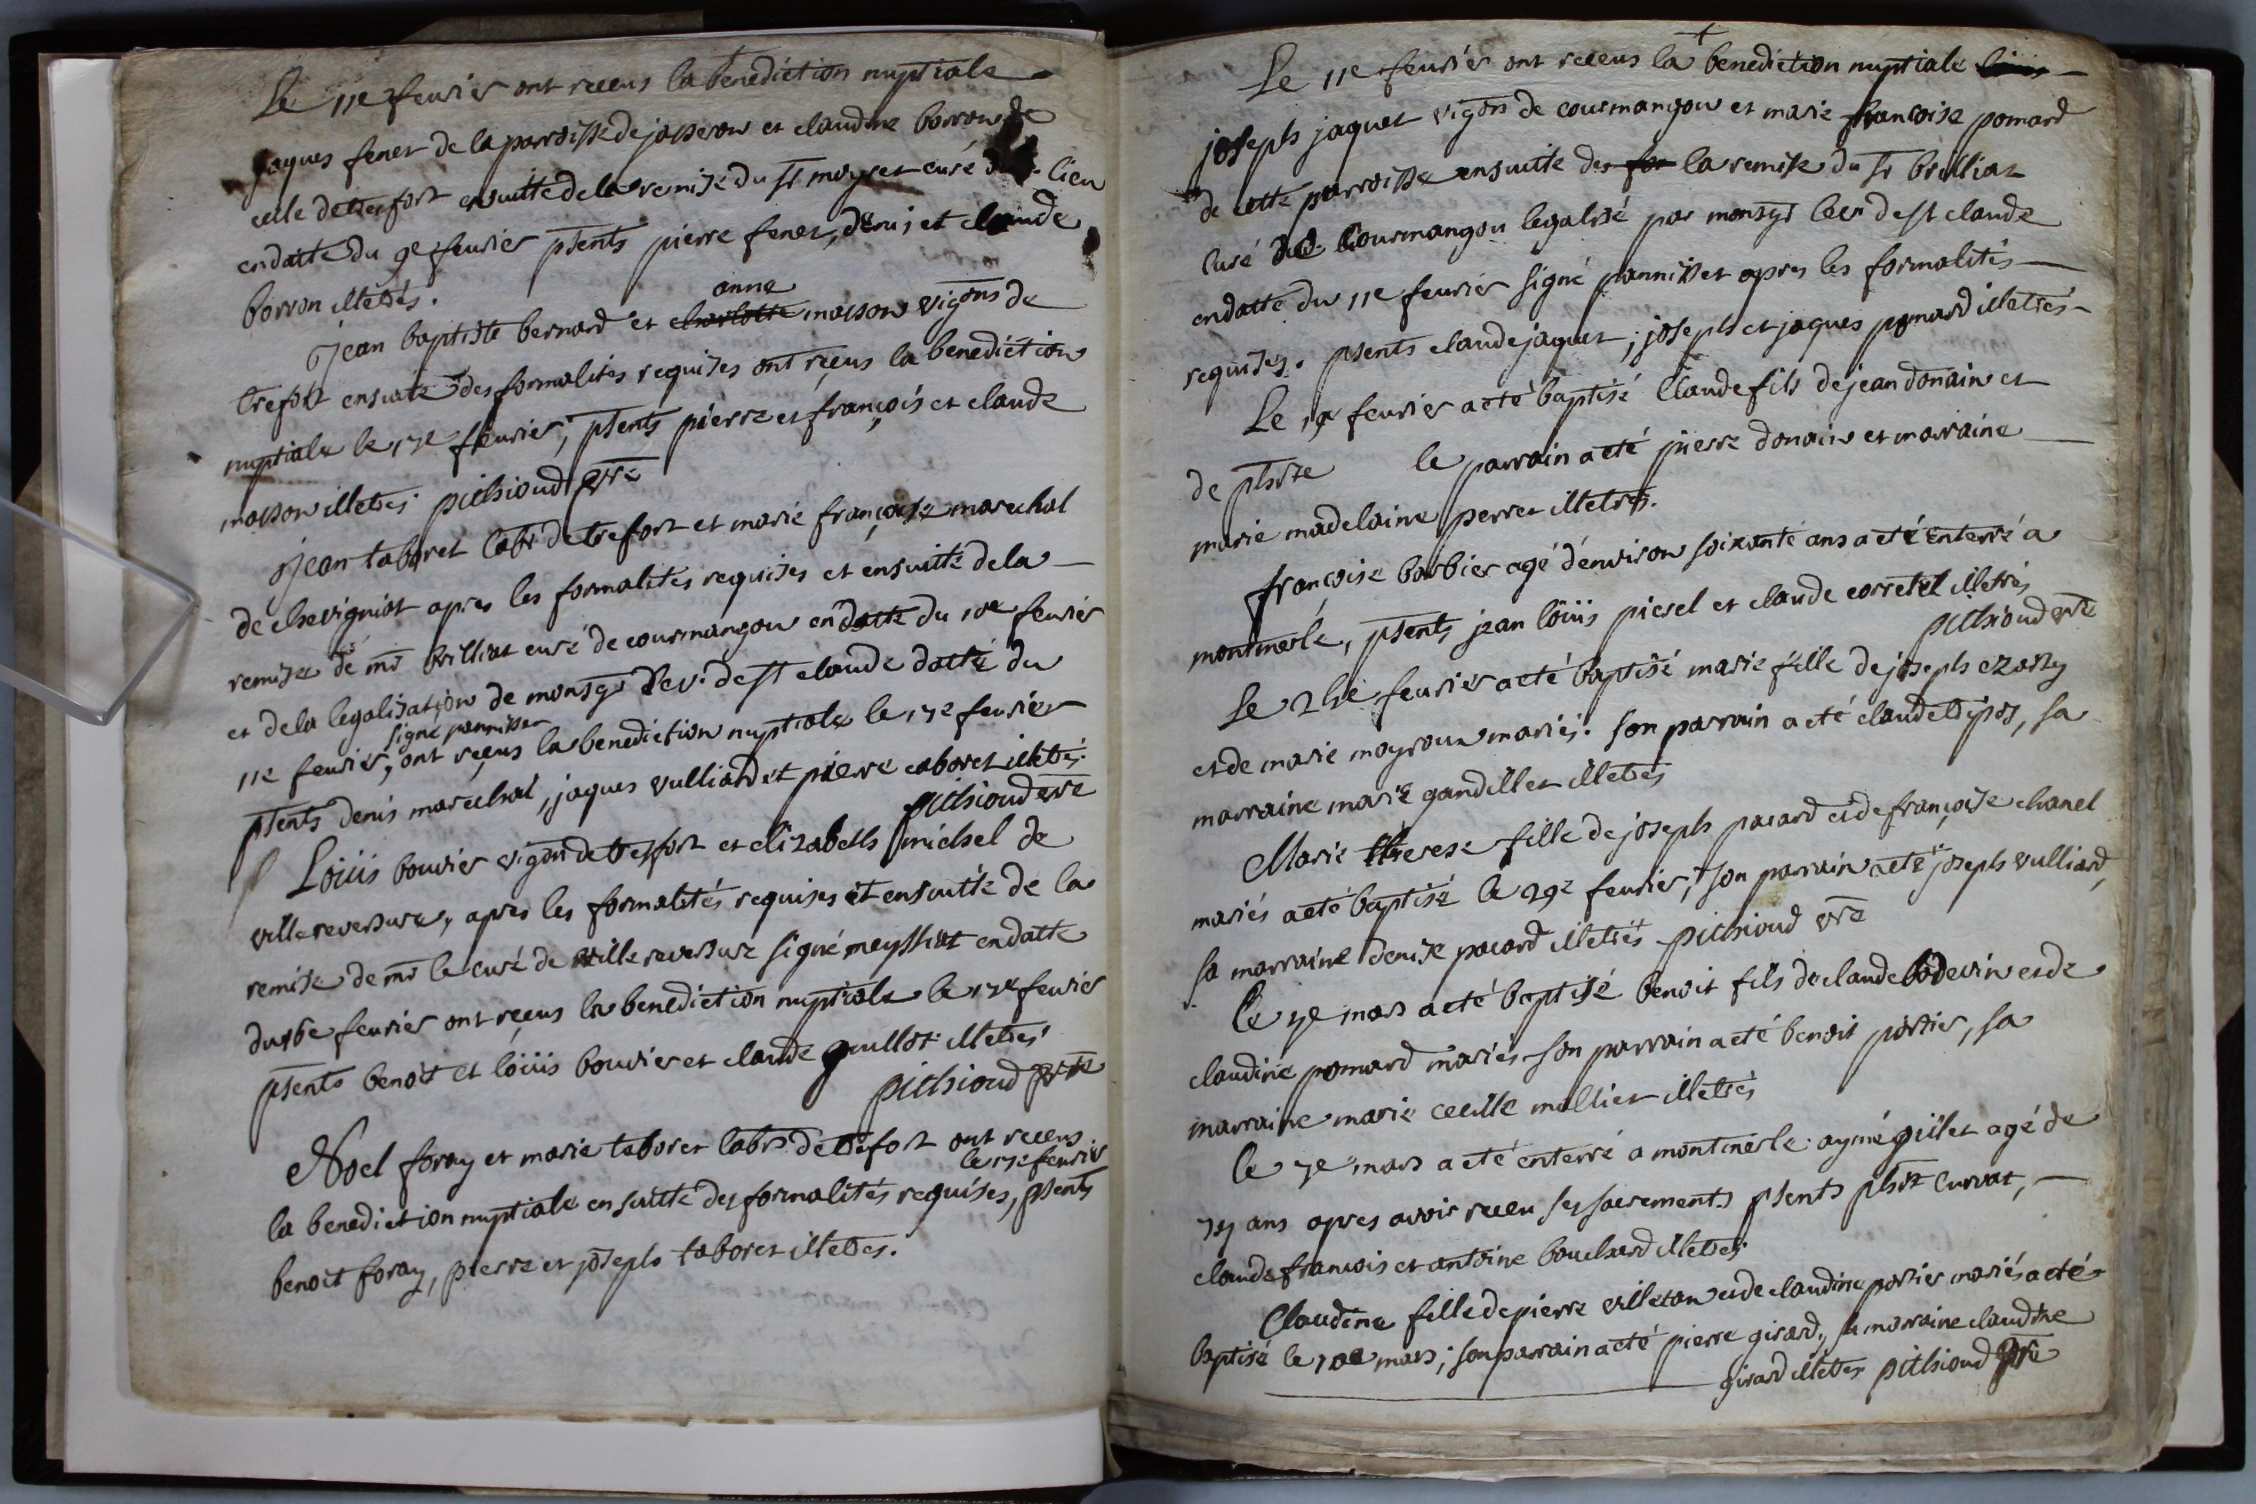 Le 11e feurier ont receus la benediction nuptiale
jaques fenet de la parroisse de jasseron et claudine borron de
celle de trefort ensuitte de la remise du sr moyret curé du lieu
en datte du 9e feurier pſents pierre fenet, denis et claude
borron illetrés.
anne
Jean baptiste bernard et charlotte masson vigons de
trefort ensuite des formalités requises ont reçus la benediction
nuptiale le 17e feurier, pſents pierre et françois et claude
masson illetrés pithioud pre
Jean taboret labr de trefort et marie françoise marechal
de chevigniat apres les formalités requises et ensuitte de la
remise de mr brilliat curé de courmangou en datte du 10e feurier
et de la legalisation de monsgr l'ev. de st claude datté du
signé pannisset
11e feurier, ont reçus la benediction nuptiale le 17e feurier
pſents denis marechal, jaques vulliard et pierre taboret illetrés
pithioud pre
Loüis bouvier vigon de trefort et elizabeth michel de
villereversure, apres les formalités requises et ensuitte de la
remise de mr le curé de villereversure signé meyssiat en datte
du 16e feurier ont reçus la benediction nuptiale le 17e feurier
pſents benoit et loüis bouvier et claude guillot illetrés
pithioud pre
Noel foray et marie taboret labrs de trefort ont receus
le 17e feurier
la benediction nuptiale ensuitte des formalités requises, pſents
benoit foray, pierre et joseph taboret illetrés.
Le 11e feurier ont receus la benediction nuptiale
joseph jaquet vigon de courmangou et marie francoise pomard
de cette parroisse ensuite des for la remise du sr brilliat
curé de Courmangou legalisé par monsgr l'ev de st claude
en datte du 11e feurier signé pannisset apres les formalités
requises. pſents claude jaquet, joseph et jaques pomard illetrés
Le 19 feurier a eté baptisé Claude fils de jean donain et
de phize le parrain a eté pierre donain et marraine
marie madelaine perret illetrés.
françoise barbier agé d'environ soixante ans a eté enterré a
montmerle, pſents jean loüis picsel et claude corretel illetrés
pithioud pre
Le 24e feurier a eté baptisé marie fille de joseph
et de marie moyroux mariés. son parrain a eté claude, sa
marraine marie gandillet illetrés
Marie therese fille de joseph pacard et de françoise chanel
mariés a eté baptisé le 29e feurier, son parrain a eté joseph vulliard,
sa marraine denise pacard illetrés pithioud pre
Le 7e mars a eté baptisé benoit fils de claude bodevin et de
claudine pomard mariés son parrain a eté benoit portier, sa
marraine marie cecille mallier illetrés
le 7e mars a eté enterré a montmerle aymé gillet agé de
ans apres avoir receu ses sacrements pſents curvat,
claude francois et antoine bouchard illetrés
Claudine fille de pierre villetan et de claudine portier mariés a eté
baptisé le 10e mars; son parrain a eté pierre girard, sa marraine claudine
girard illetrés pithioud pre